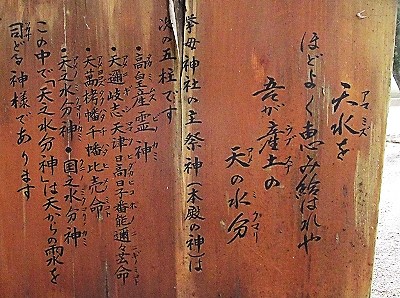 天水を
ほどよく恵み給はれや
吾が産土の
天の水分
挙母神社の主祭神(本殿の神)は
次の五柱です
・高皇産霊神
・天邇岐志天津日高日子番能邇々芸命
・天萬栲幡千幡比売命
・天之水分神・国之水分神
この中で「天之水分神」は天からの雨を
司どる神様であります